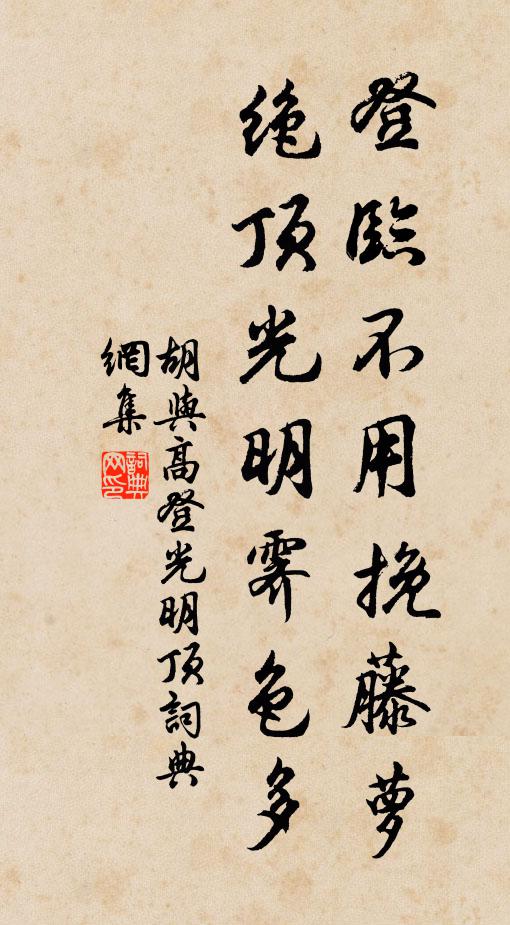 登臨不用挽藤萝
绝顶光明霽色多
胡與高登光明顶詞典
網集
詞典網印